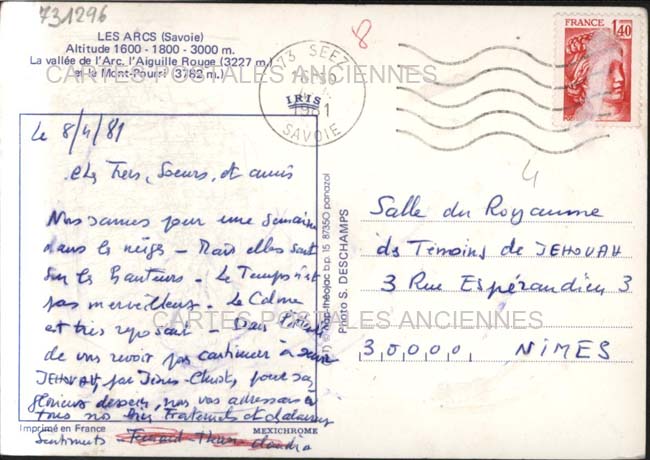 731296
LES ARCS (Savoie)
Altitude 1600 - 1800 - 3000 m.
La vallée de l'Arc, l'Aiguille Rouge (3227 m.)
et le Mont-Pourri (3782 m.)
8
73 SEEZ
IRIS
1981
SAVOIE
FRANCE
1,40
CARTES POSTALES ANCIENNES
le 8/4/81
chs Frères, Soeurs, et amis
Nous sommes pour une semaine
dans la neige - Mais elles sont
sur les hauteurs - Le Temps n'est
pas merveilleux - Le Calme
et très reposant - Dans
de vous revoir pour continuer à servir
JEHOVAH, par Jésus-Christ, pour ses
glorieux desseins, nous vous adressons à
tous nos très Fraternels et chaleureux
Sentiments -
4
Salle du Royaume
ds Témoins de JEHOVAH
3 Rue Espérandieu 3
30000, NIMES
CARTES POSTALES ANCIENNES
théojac b.p. 15 87350 panazol
Photo S. DESCHAMPS
Imprimé en France
MEXICHROME